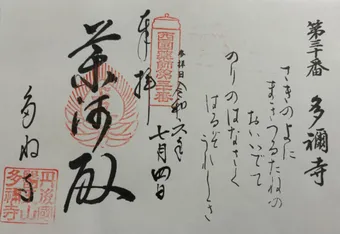 第三十番 多禰寺
さきのよに
まきつるたねの
おいいでて
のりのはなさく
はるぞうれしき
参拝日 令和六年
七月四日
西國薬師第三十番
奉拝
薬師殿
多祢寺
丹後國
山
多禰寺